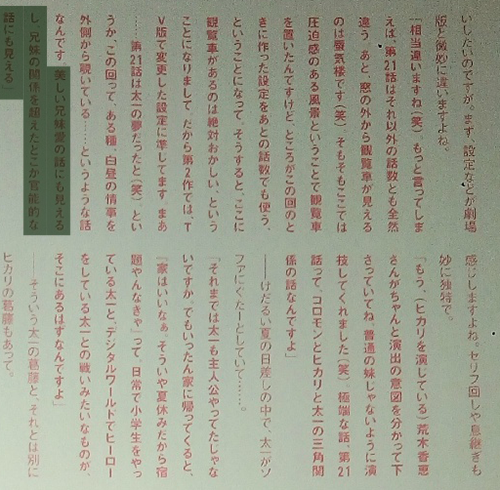 いしたいのですが。まず、設定などが劇場
版と微妙に違いますよね。
「相当違いますね(笑)。もっと言ってしま
えば、第21話はそれ以外の話数とも全然
違う。あと、窓の外から観覧車が見える
のは蜃気楼です(笑)。そもそもここでは
圧迫感のある風景ということで観覧車
を置いたんですけど、ところがこの回のと
きに作った設定をあとの話数でも使う、
ということになって。そうすると、ここに
観覧車があるのは絶対おかしい、という
ことになりまして。だから第2作では、T
V版で変更した設定に準じてます。まあ
……第21話は太一の夢だったと(笑)。とい
うか、この回って、ある種、白昼の情事を
外側から覗いている……というような話
なんです。美しい兄妹愛の話にも見える
し、兄妹の関係を超えたどこか官能的な
話にも見える」
感じしますよね。セリフ回しや息継ぎも
妙に独特で。
「もう、(ヒカリを演じている)荒木香恵
さんがちゃんと演出の意図を分かって下
さっていてね。普通の妹じゃないように演
技してくれました(笑)。極端な話、第21
話って、コロモンとヒカリと太一の三角関
係の話なんですよ」
――けだるい夏の日差しの中で、太一がソ
ファにぐたーとしていて……。
「それまでは太一も主人公やってたじゃな
いですか。でもいったん家に帰ってくると、
『家はいいなぁ。そういや夏休みだから宿
題やんなきゃ』って、日常で小学生をやっ
ている太一と、デジタルワールドでヒーロー
をしている太一との戦いみたいなものが、
そこにあるはずなんですよ」
――そういう太一の葛藤と、それとは別に
ヒカリの葛藤もあって。